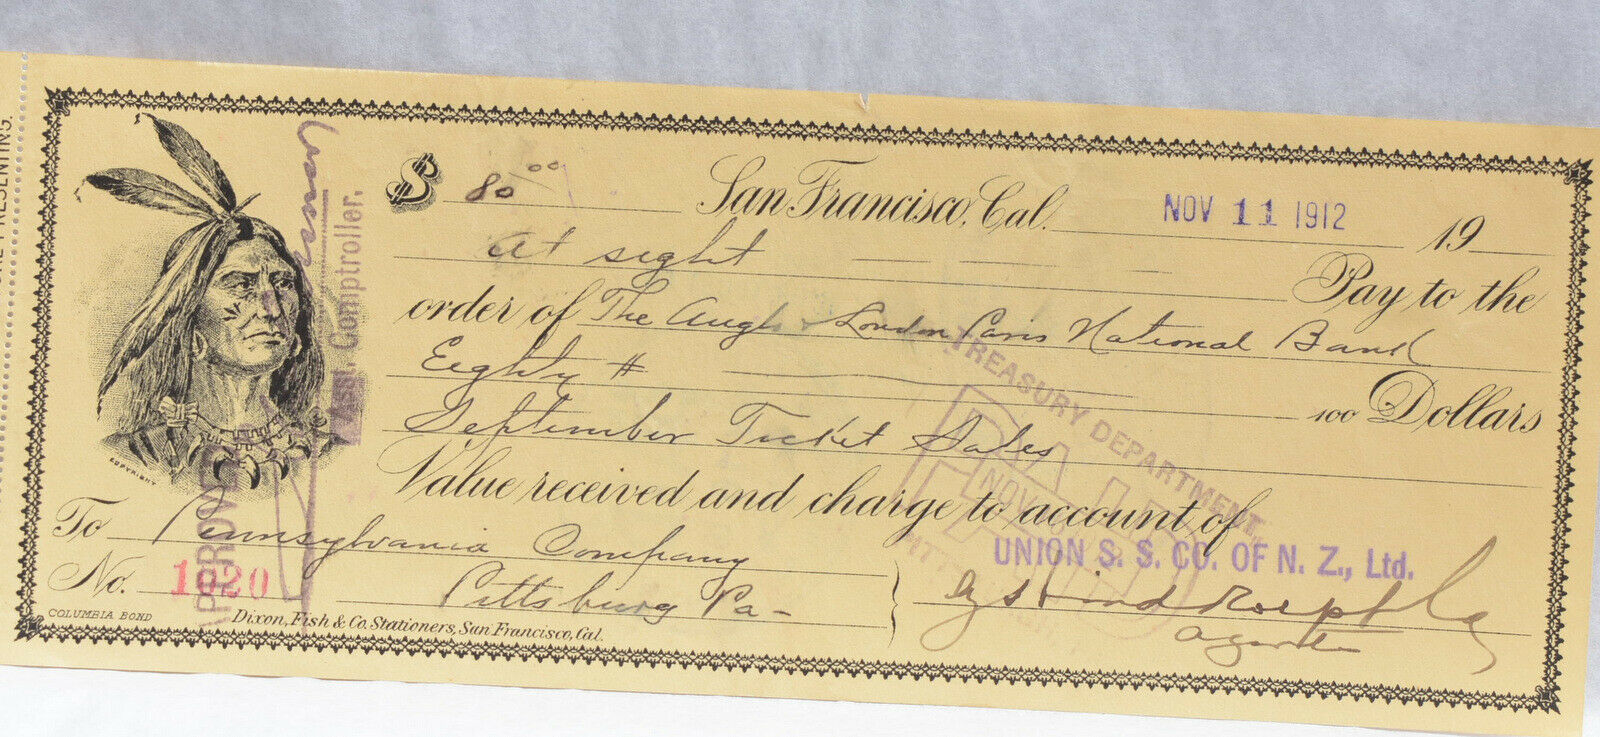 $ 80 00 San Francisco, Cal. NOV 11 1912 19
At sight Pay to the
order of The Anglo & London Paris National Bank
Eighty # 100 Dollars
September Ticket Sales
Value received and charge to account of
To Pennsylvania Company
UNION S. S. CO. OF N. Z., Ltd.
No. 1020 Pittsburg Pa-
Agents
COLUMBIA BOND Dixon, Fish & Co. Stationers, San Francisco, Cal.
COPYRIGHT
APPROVED
Asst. Comptroller.
TREASURY DEPARTMENT.
PAID
NOV
PRESENTING.